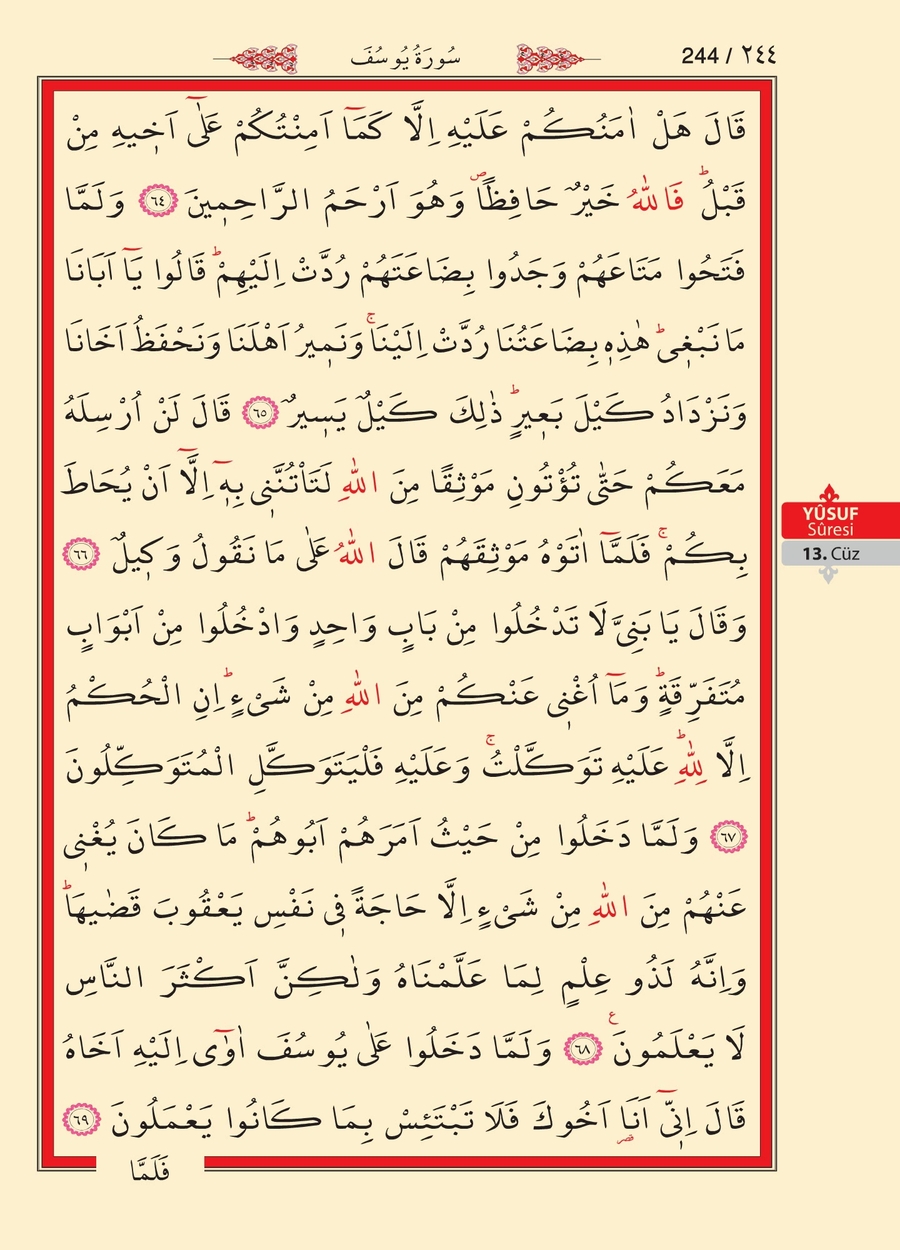 سُورَةُ يُوسُفَ
244 / ٢٤٤
قَالَ هَلْ اٰمَنُكُمْ عَلَيْهِ اِلَّا كَمَٓا اَمِنْتُكُمْ عَلٰٓى اَخ۪يهِ مِنْ
قَبْلُۜ فَاللّٰهُ خَيْرٌ حَافِظًاۖ وَهُوَ اَرْحَمُ الرَّاحِم۪ينَ ﴿٦٤﴾ وَلَمَّا
فَتَحُوا مَتَاعَهُمْ وَجَدُوا بِضَاعَتَهُمْ رُدَّتْ اِلَيْهِمْۜ قَالُوا يَٓا اَبَانَا
مَا نَبْغ۪ىۜ هٰذِه۪ بِضَاعَتُنَا رُدَّتْ اِلَيْنَاۚ وَنَم۪يرُ اَهْلَنَا وَنَحْفَظُ اَخَانَا
وَنَزْدَادُ كَيْلَ بَع۪يرٍۜ ذٰلِكَ كَيْلٌ يَس۪يرٌ ﴿٦٥﴾ قَالَ لَنْ اُرْسِلَهُ
مَعَكُمْ حَتّٰى تُؤْتُونِ مَوْثِقًا مِنَ اللّٰهِ لَتَأْتُنَّن۪ى بِه۪ٓ اِلَّٓا اَنْ يُحَاطَ
بِكُمْۚ فَلَمَّٓا اٰتَوْهُ مَوْثِقَهُمْ قَالَ اللّٰهُ عَلٰى مَا نَقُولُ وَك۪يلٌ ﴿٦٦﴾
وَقَالَ يَا بَنِىَّ لَا تَدْخُلُوا مِنْ بَابٍ وَاحِدٍ وَادْخُلُوا مِنْ اَبْوَابٍ
مُتَفَرِّقَةٍۜ وَمَٓا اُغْن۪ى عَنْكُمْ مِنَ اللّٰهِ مِنْ شَىْءٍۜ اِنِ الْحُكْمُ
اِلَّا لِلّٰهِۜ عَلَيْهِ تَوَكَّلْتُۚ وَعَلَيْهِ فَلْيَتَوَكَّلِ الْمُتَوَكِّلُونَ
﴿٦٧﴾ وَلَمَّا دَخَلُوا مِنْ حَيْثُ اَمَرَهُمْ اَبُوهُمْۜ مَا كَانَ يُغْن۪ى
عَنْهُمْ مِنَ اللّٰهِ مِنْ شَىْءٍ اِلَّا حَاجَةً ف۪ى نَفْسِ يَعْقُوبَ قَضٰيهَاۜ
وَاِنَّهُ لَذُو عِلْمٍ لِمَا عَلَّمْنَاهُ وَلٰكِنَّ اَكْثَرَ النَّاسِ
لَا يَعْلَمُونَ۟ ﴿٦٨﴾ وَلَمَّا دَخَلُوا عَلٰى يُوسُفَ اٰوٰٓى اِلَيْهِ اَخَاهُ
قَالَ اِنّ۪ٓى اَنَا اَخُوكَ فَلَا تَبْتَئِسْ بِمَا كَانُوا يَعْمَلُونَ ﴿٦٩﴾
قصر
فَلَمَّا
YÛSUF
Sûresi
13. Cüz